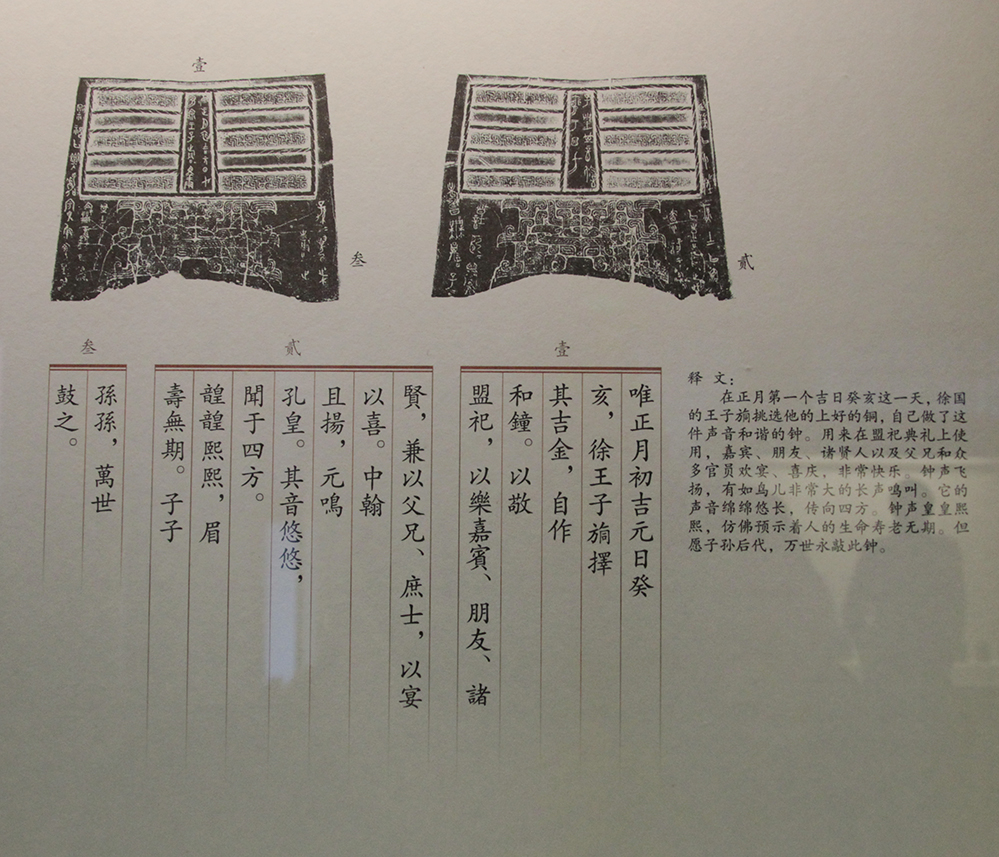 壹
叁
貳
壹
唯正月初吉元日癸
亥，徐王子旃擇
其吉金，自作
和鐘。以敬
盟祀，以樂嘉賓、朋友、諸
貳
賢，兼以父兄、庶士，以宴
以喜。中翰
且揚，元鳴
孔皇。其音悠悠，
聞于四方。
韹韹熙熙，眉
壽無期。子子
叁
孫孫，萬世
鼓之。
释文：
在正月第一个吉日癸亥这一天，徐国
的王子旃挑选他的上好的铜，自己做了这
件声音和谐的钟。用来在盟祀典礼上使
用，嘉宾、朋友、诸贤人以及父兄和众
多官员欢宴、喜庆，非常快乐。钟声飞
扬，有如鸟儿非常大的长声鸣叫。它的
声音绵绵悠长，传向四方。钟声皇皇熙
熙，仿佛预示着人的生命寿老无期。但
愿子孙后代，万世永敲此钟。